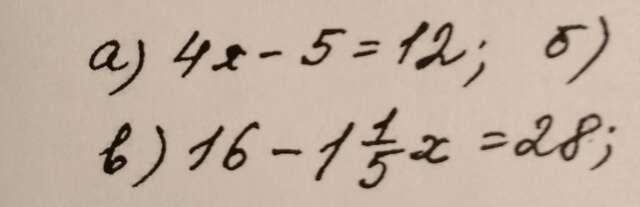 а) 4x - 5 = 12; б)
в) 16 - 1 1/5 x = 28;